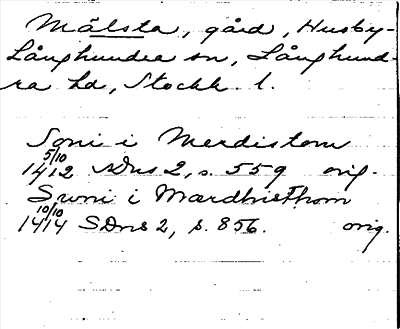 Målsta, gård, Husby-
Långhundra sn, Långhund-
ra hd, Stockh. l.
Soni i Merdistom
5/10
1412 SDns 2, s. 559 orig.
Suni i Mardhisthom
10/10
1414 SDns 2, s. 856. orig.